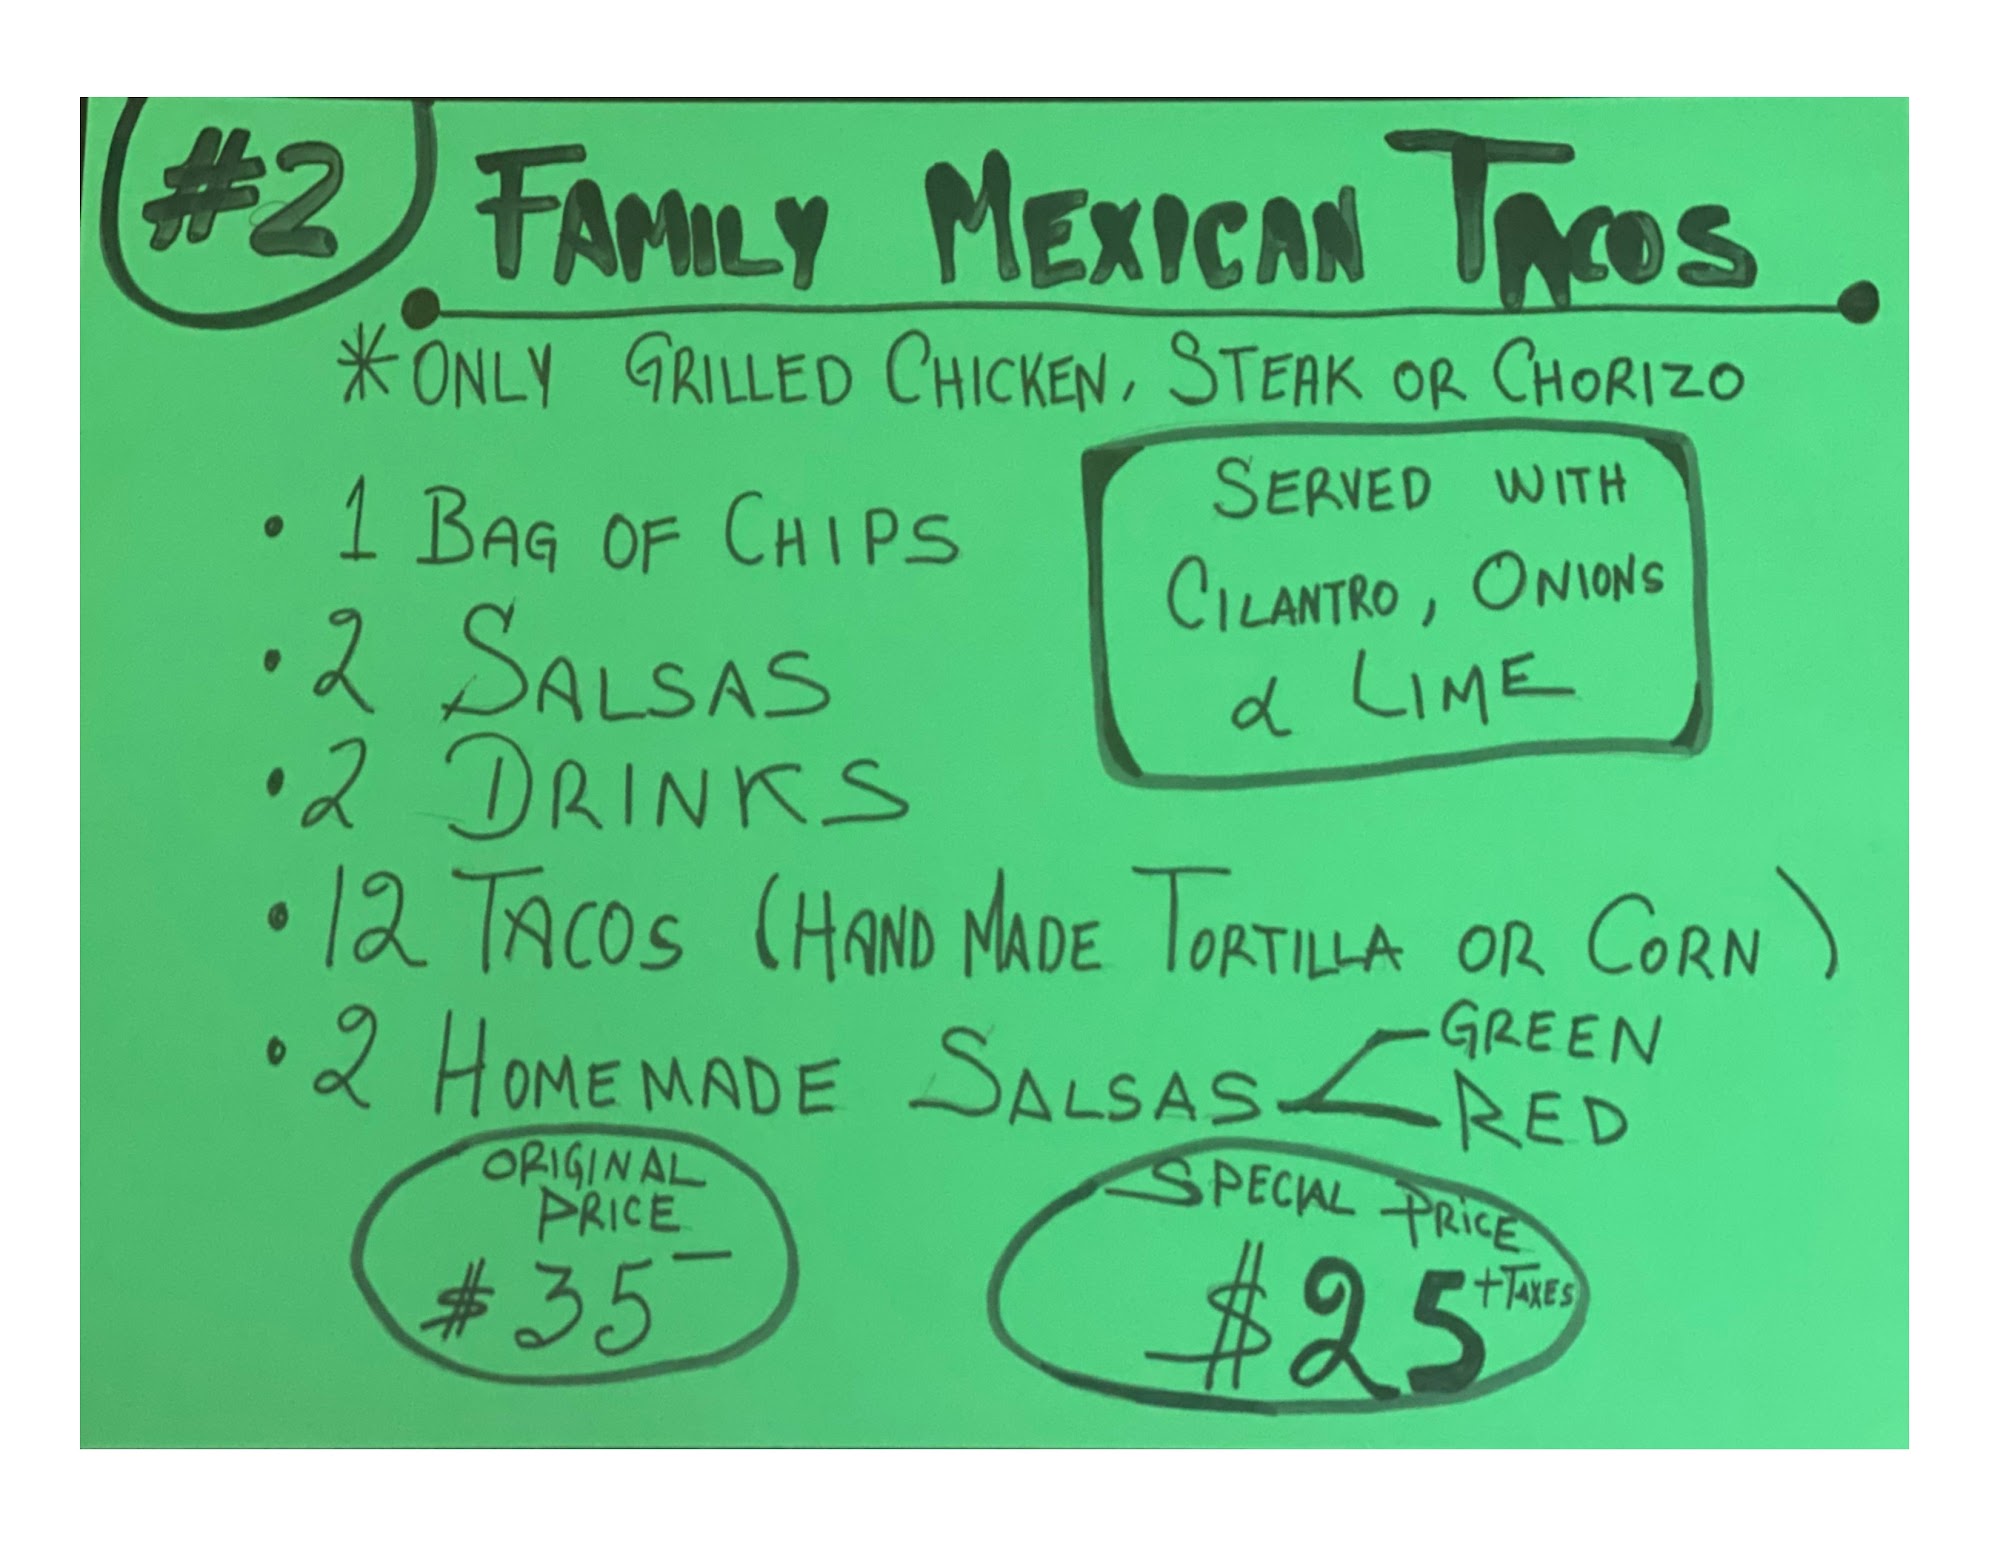 #2 FAMILY MEXICAN TACOS
*ONLY GRILLED CHICKEN, STEAK OR CHORIZO
• 1 BAG OF CHIPS
• 2 SALSAS
• 2 DRINKS
SERVED WITH
CILANTRO, ONIONS
& LIME
• 12 TACOS (HAND MADE TORTILLA OR CORN)
• 2 HOMEMADE SALSAS
GREEN
RED
ORIGINAL
PRICE
$35-
SPECIAL PRICE
$25 +TAXES